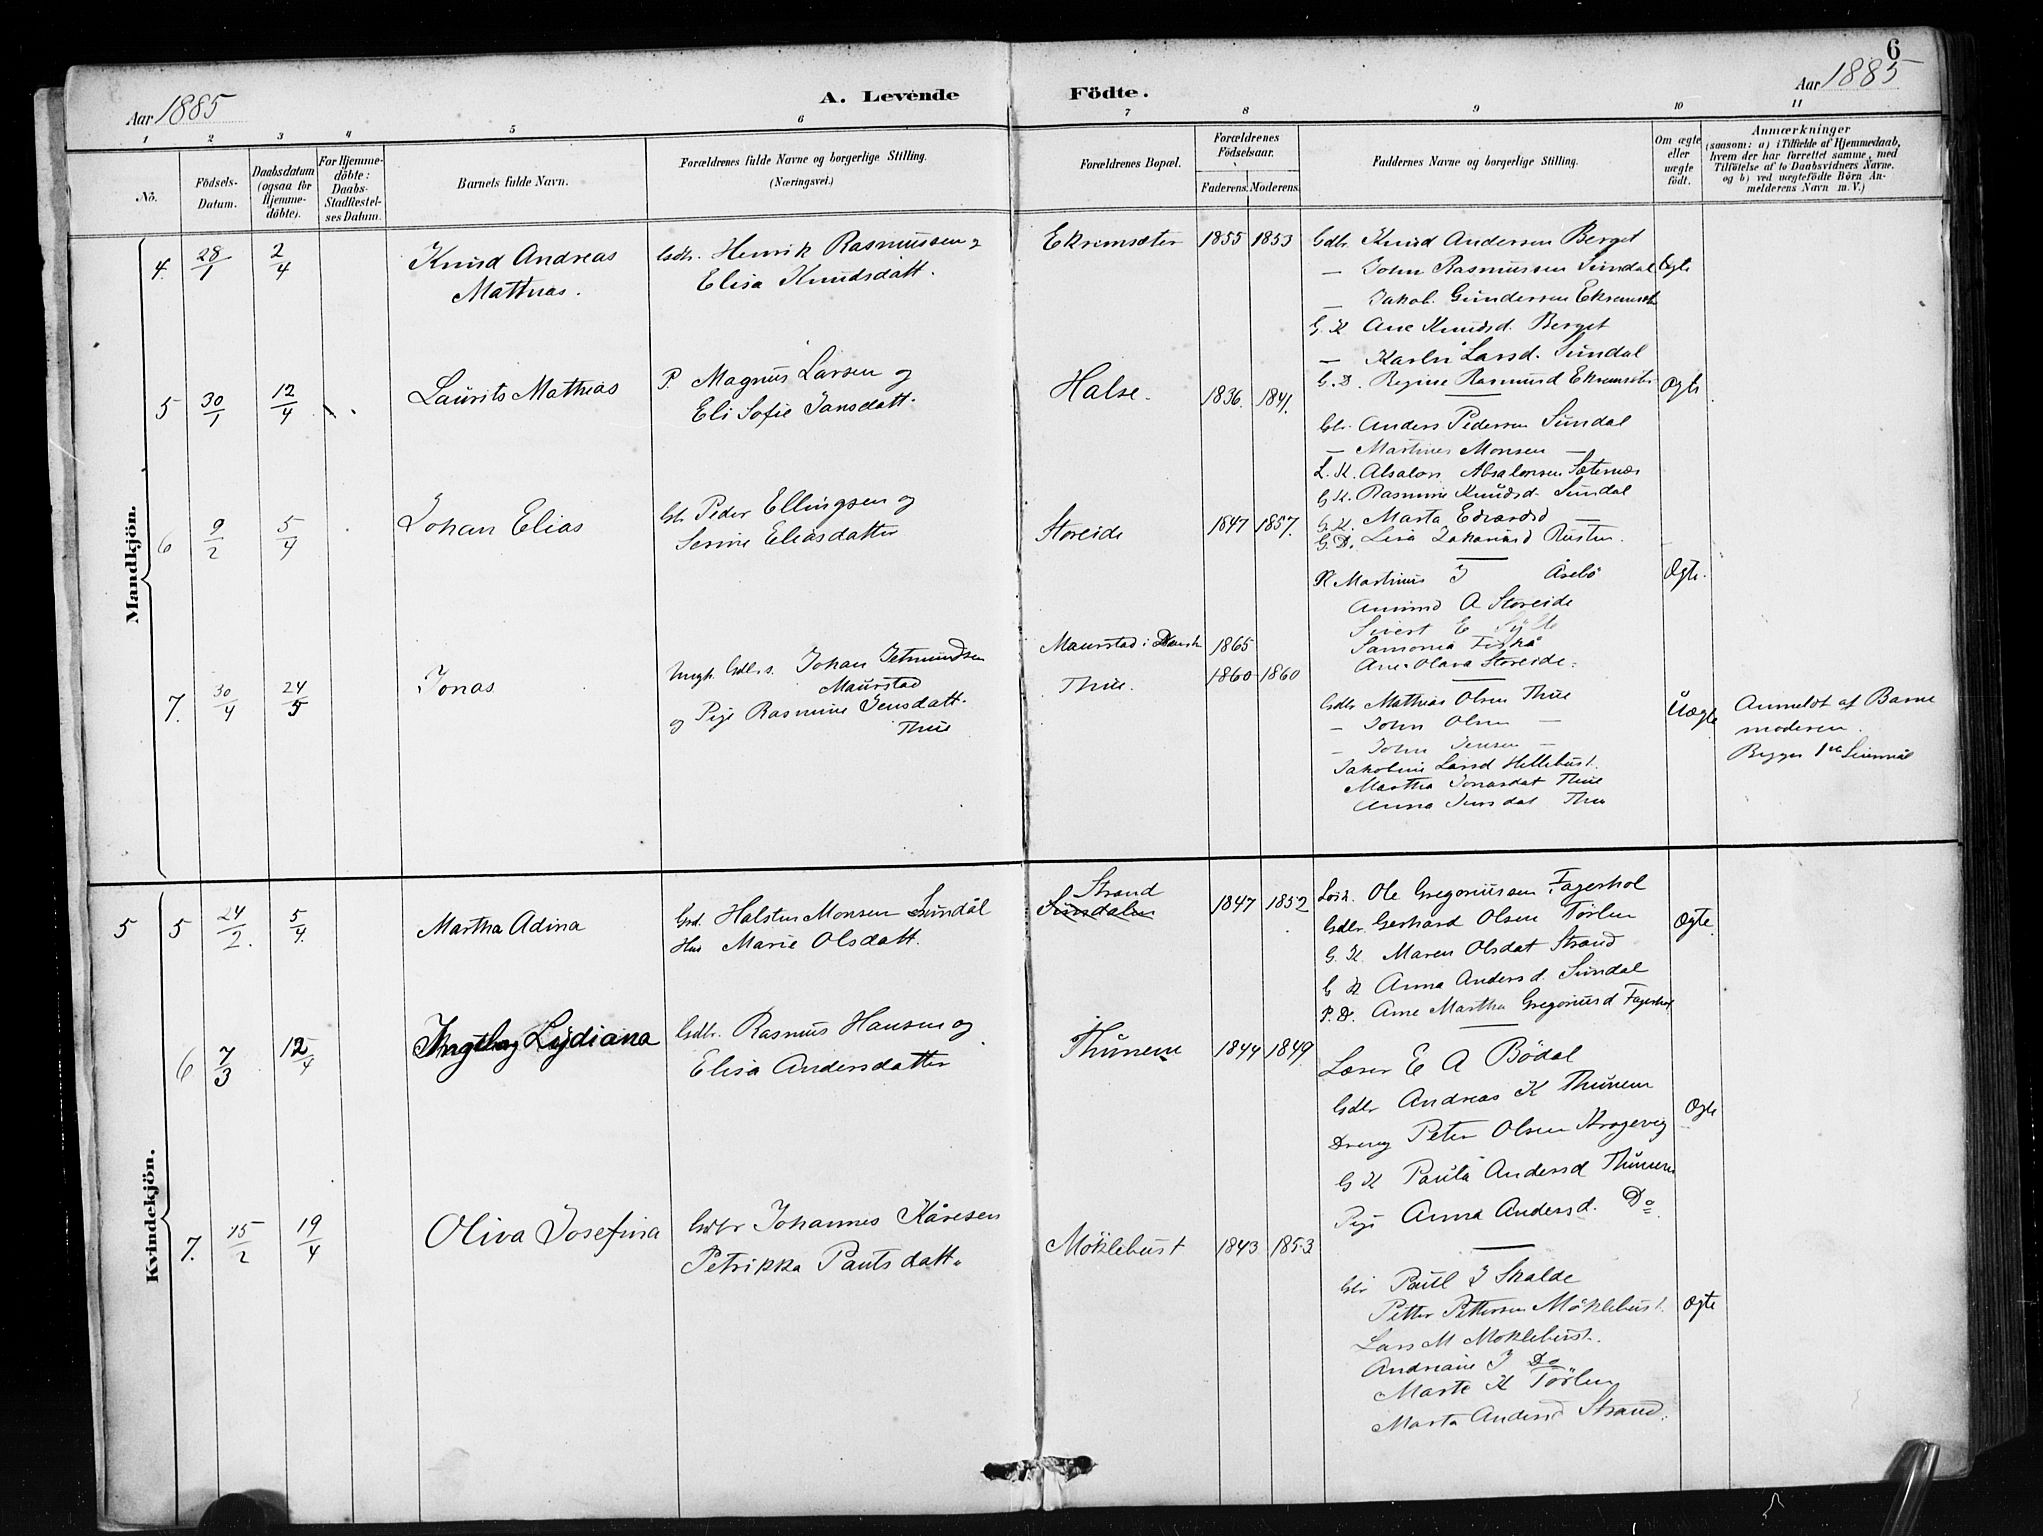 6
Aar 1885
A. Levende Födte.
Aar 1885
1 2 3 4 5 6 7 8 9 10 11
No.
Födsels-Datum.
Daabsdatum (ogsaa for Hjemmedöbte).
For Hjemmedöbte: Daabs-Stadfæstelses Datum.
Barnets fulde Navn.
Forældrenes fulde Navne og borgerlige Stilling.
(Næringsvei.)
Forældrenes Bopæl.
Forældrenes Födselsaar.
Faderens. Moderens.
Faddernes Navne og borgerlige Stilling.
Om ægte eller uægte födt.
Anmærkninger
(saasom: a) i Tilfælde af Hjemmedaab, hvem der har forrettet samme, med Tilföielse af to Daabsvidners Navne. og b) ved uægtefödte Börn Anmelderens Navn m. V.)
Mandkjön.
4. 28/1 2/4
Knud Andreas
Mathias.
Gdbr. Henrik Rasmussen &
Elisa Knudsdatt.
Ekremsæter 1855 1853
Gdbr. Knud Andersen Berget
— John Rasmussen Sundal
— Jakob Gundersen Ekremsæt
G. K Ane Knudsd. Berget
— Karln Larsd. Sundal
G. D. Regine Rasmusd Ekremsæt
Ægte
5 30/1 12/4
Laurits Mathias
P. Magnus Larsen og
Eli Sofie Jansdatt.
Halse. 1836. 1841.
Ægte
Gbr. Anders Pedersen Sundal
— Martines Monsen —
L. K. Absalon Absalonsen Sæternæs
G K. Rasmine Knudsd. Sundal
G. K. Marta Edvardsd —
G. D. Lina Zakariasd Rusten.
6 9/2 5/4
Johan Elias
Gbr Peder Ellingsen og
Serine Eliasdatter
Storeide 1847 1857.
Martinus J Åsebø
Amund A Storeide
Sivert E Sylte
Samona Fiskå
Ane Olava Storeide.
Ægte.
7. 30/4 24/5
Jonas
Ungk. Gdbr.s. Johan Jetmundsen
Maurstad
og Pige Rasmine Jensdatt.
Thue
Maurstad i Davik 1865
Thue. 1860 1860
Gdbr Mathias Olsen Thue
— John Olsen —
— John Jensen —
Jakobine Larsd Hellebust.
Martha Jonasdat Thue
Anna Jensdat Thue
Uægte
Anmeldt af Barne
moderen.
Begges 1ste Leiermål
Kvindekjön.
5 5 24/2. 5/4.
Martha Adina
Grd. Halsten Monsen Sundal
Hus Marie Olsdatt.
Strand
Sundalen 1847 1852
Losk. Ole Gregoriussen Fagerhol
Gdbr. Gerhard Olsen Tørlen
G. K. Maren Olsdat Strand
G K Anna Andersd. Sundal
P. D. Ane Martha Gregoriusd Fagerhol
Ægte.
6 7/3 12/4
Ingeborg Lydiana
Gdbr. Rasmus Hansen og
Elisa Andersdatter
Thunem 1844 1849
Læser E A Bödal
Gdbr Andreas K Thunem
Dreng Peter Olsen Krogevig
G K Paula Andersd Thunem
Pige Anna Andersd. Do
Ægte
7. 15/2 19/4
Oliva Josefina
Gdbr Johannes Kåresen
Petrikka Paulsdatt.
Möklebust 1843 1853
Gbr Paul J Skalde
Petter Pettersen Möklebust.
Lars M Moklebust.
Andriane J Do
Marte K Törlen
Marta Andersd Strand.
Ægte